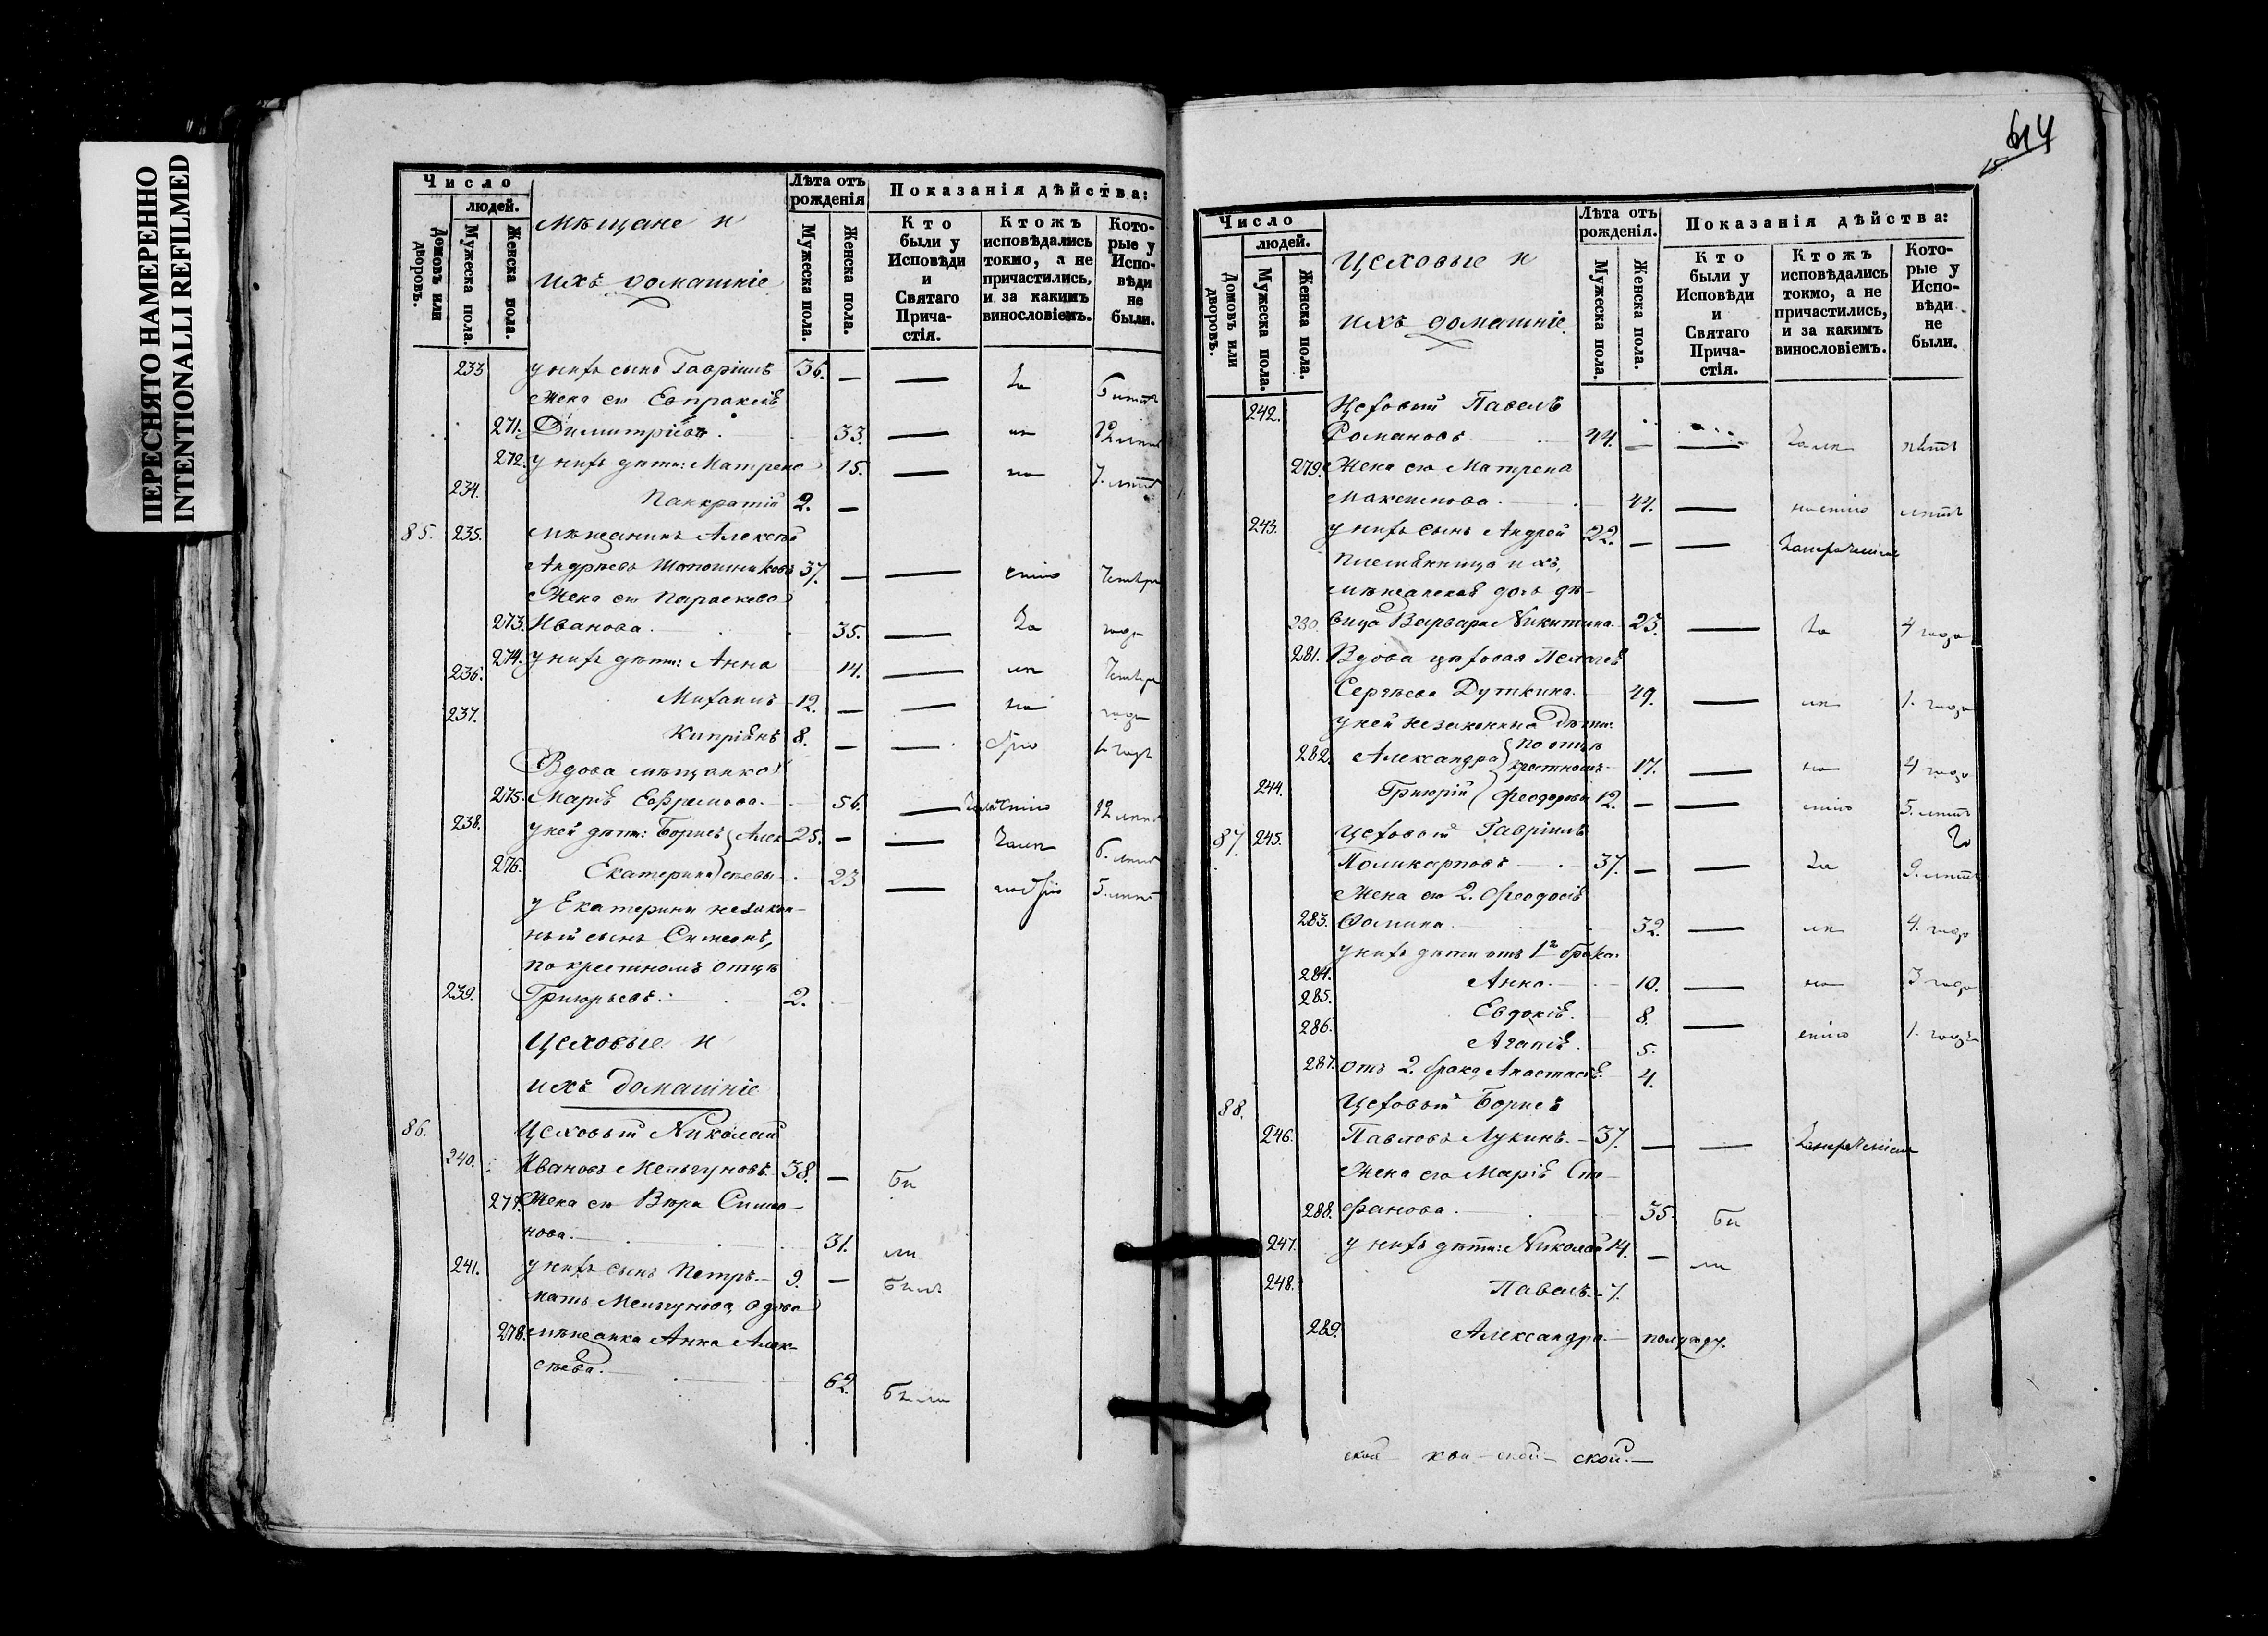 ПЕРЕСНЯТО НАМЕРЕННО
INTENTIONALLI REFILMED
Число
людей.
Домовъ или дворовъ.
Мужеска пола.
Женска пола.
Мѣщане и
ихъ домашніе
Лѣта отъ рожденія
Мужеска пола.
Женска пола.
Показанія дѣйства:
Кто были у Исповѣди и Святаго Прича-стія.
Ктожъ исповѣдались токмо, а не причастились, и за какимъ винословіемъ.
Кото-рые у Испо-вѣди не были.
233 у нихъ сынъ Гавріилъ 36. — — За 6 лѣтъ
Жена его Евпраксія
271. Димитріева. 33. — 12 лѣтъ
272. у нихъ дѣти: Матрена 15. — 7. лѣтъ
234. Панкратій 2. —
85. 235. мѣщанинъ Алексѣй
Андреевъ Шапошниковъ 37. — —
Жена его Параскева
273. Иванова. 35. — За года
274. у нихъ дѣти: Анна 14. —
236. Михаилъ 12. — — года
237. Кипріянъ 8. — — 1 годъ
Вдова мѣщанка
275. Марія Ефремова. 56. — 12 лѣтъ
238. у ней дѣти: Борисъ Алек- 25. — — 6. лѣтъ
276. Екатерина сѣевы 23 — 5. лѣтъ
у Екатерины незакон-
ный сынъ Симеонъ,
по крестномъ отцѣ
239. Григорьевъ. 2.
Цеховые и
ихъ домашніе
86. Цеховый Николай
240. Ивановъ Мельгуновъ. 38. — Бы
277. Жена его Вѣра Симео-
нова. 31. ли
241. у нихъ сынъ Петръ. 9. — Былъ
мать Мельгунова, вдова
278. мѣщанка Анна Алек-
сѣева. 62. Были
614
Число
людей.
Домовъ или дворовъ.
Мужеска пола.
Женска пола.
Цеховые и
ихъ домашніе
Лѣта отъ рожденія.
Мужеска пола.
Женска пола.
Показанія дѣйства:
Кто были у Исповѣди и Святаго Прича-стія.
Ктожъ исповѣдались токмо, а не причастились, и за какимъ винословіемъ.
Кото-рые у Испо-вѣди не были.
242. Цеховый Павелъ
Романовъ 44. — —
279. Жена его Матрена
Максимова. 44. —
243. у нихъ сынъ Андрей 22. — —
племянница ихъ,
мѣщанская дочь дѣ-
280. вица Варвара Никитина. 23. — За 4 года
281. Вдова цеховая Пелагея
Сергѣева Дуткина. 49. — 1. года
у ней незаконныя дѣти:
282. Александра по отцѣ крестномъ 17. — 4 года
244. Григорій Феодоровы 12. — — 5. лѣтъ
87. 245. Цеховый Гавріилъ
Поликарповъ 37. — — За 9. лѣтъ
Жена его 2. Феодосія
283. Фомина 32. — 4. года
у нихъ дѣти отъ 1го брака
284. Анна. 10. — 3 года
285. Евдокія. 8. — 1. года
286. Агапія. 5.
287. отъ 2. брака, Анастасія. 4.
88. Цеховый Борисъ
246. Павловъ Лукинъ. 37. — —
Жена его Марія Сте-
288. фанова. 35. Бы
247. у нихъ дѣти: Николай 14. — ли
248. Павелъ. 7.
289. Александра. полугоду.
ской.